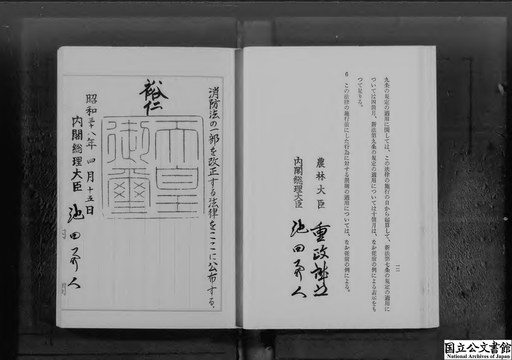 九条の規定の適用に関しては、この法律の施行の日から起算して、新法第七条の規定の適用に
ついては四箇月、新法第九条の規定の適用については十箇月は、なお従前の例による表示をも
つて足りる。
6 この法律の施行前にした行為に対する罰則の適用については、なお従前の例による。
農林大臣 重政誠之
内閣総理大臣 池田勇人
一二
消防法の一部を改正する法律をここに公布する。
裕仁
天皇
御璽
昭和三十八年四月十五日
内閣総理大臣 池田勇人
国立公文書館
National Archives of Japan